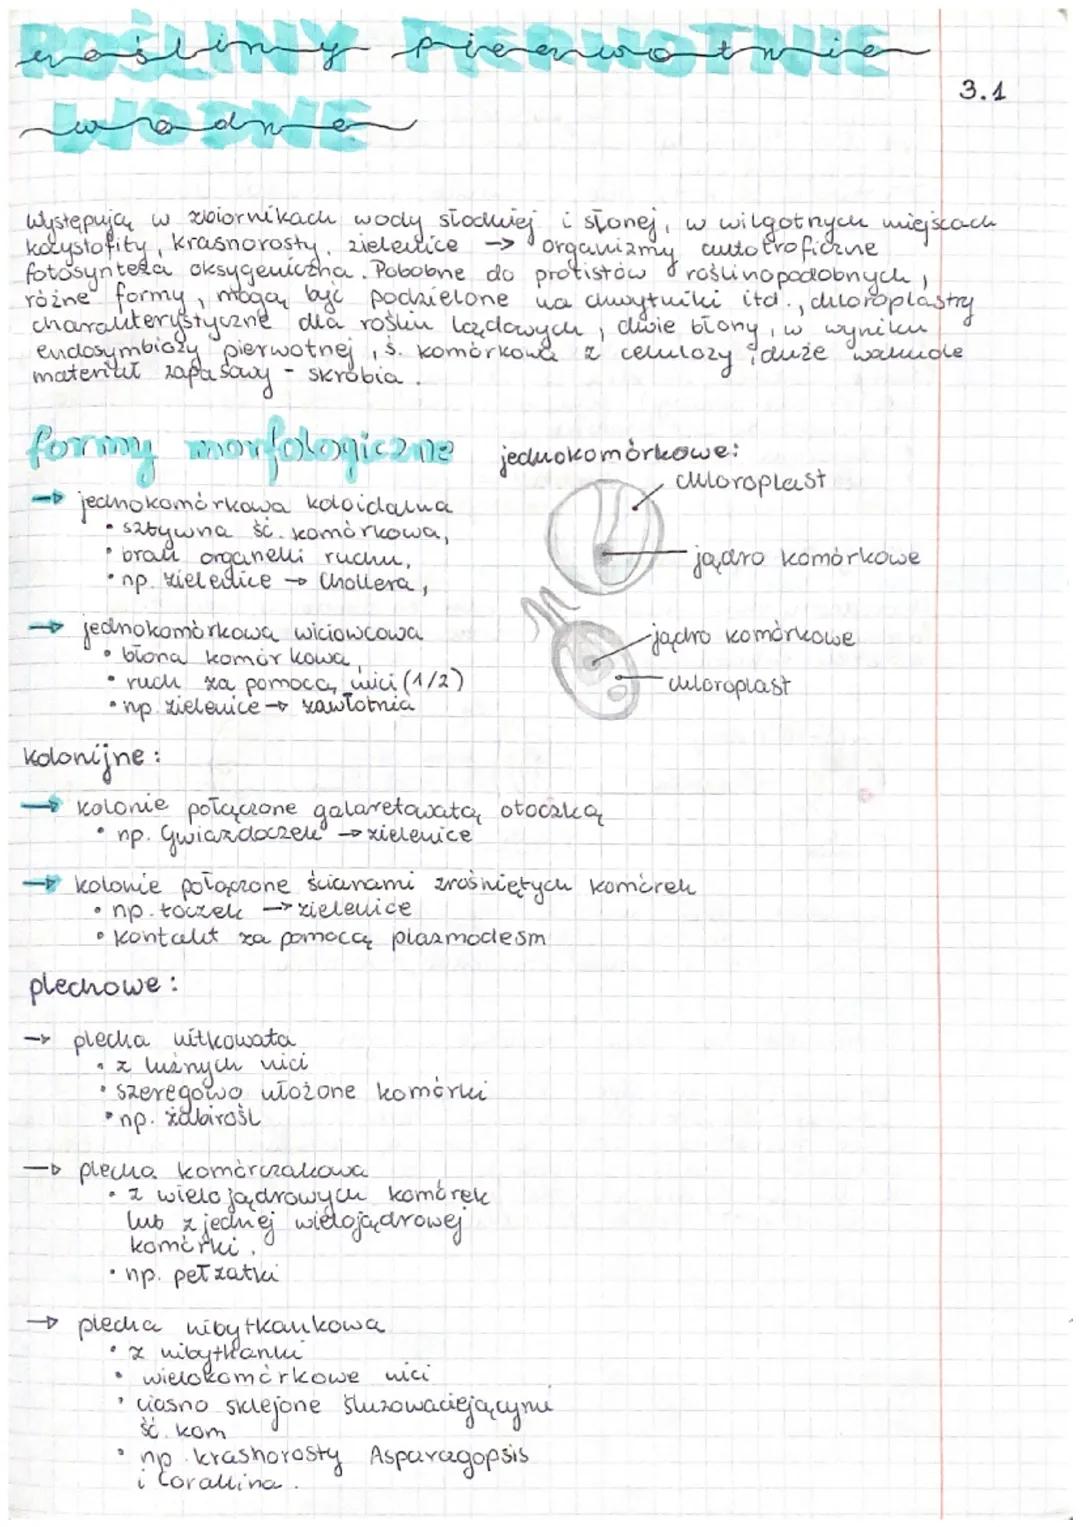 ROŚLINY PIERWOTNIE
rośliny pierwotnie
3.1
WODNE
wodne
Występują w zbiornikach wody słodkiej i słonej, w wilgotnych miejscach
krasnorosty, zielenice → organizmy autotroficzne
fotosynteza oksygeniczna. Pobobne do protistów roślinopodobnych,
różne formy, mogą być podzielone na chwytniki itd., chloroplastry
charakterystyczne dla roślin lądowych, dwie błony, w wyniku
endosymbiozy pierwotnej, ś. komórkowa z celulozy, duże wakuole
materiał zapasowy - skrobia.
formy morfologiczne
jednokomórkowe:
chloroplast
→ jednokomórkowa koloidalna
• sztywna ść. komórkowa,
• brak organelli ruchu,
jądro komórkowe
• np. zielenice → Chollera,
→ jednokomórkowa wiciowcowa
jądro komórkowe
• błona komórkowa,
• ruch za pomocą wici (1/2)
chloroplast
• np. zielenice → zawłotnia
kolonijne:
→ kolonie połączone galaretowatą otoczką
• np. Gwiazdoczek → zielenice
→ kolonie połączone ścianami zrośniętych komórek
• np. toczek → zielenice
• kontakt za pomocą plazmodesm
plechowe:
→ plecha nitkowata
• z luźnych nici
• szeregowo ułożone komórki
• np. żabirośl
→ plecha komórczakowa
• z wielojądrowych komórek
lub z jednej wielojądrowej
komórki.
• np. pełzatki
→ plecha nibytkankowa
• z nibytkanki
• wielokomórkowe nici
• ciasno sklejone śluzowaciejącymi
ść. kom
• np. krasnorosty Asparagopsis
i Corallina.